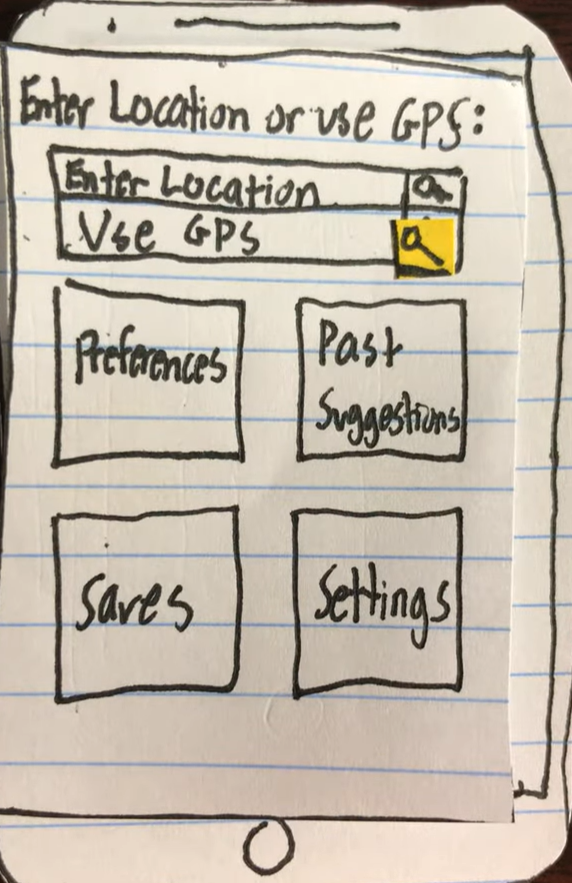 Enter Location or use GPS:
Enter Location
Use GPS
Preferences
Past
Suggestions
Saves
Settings